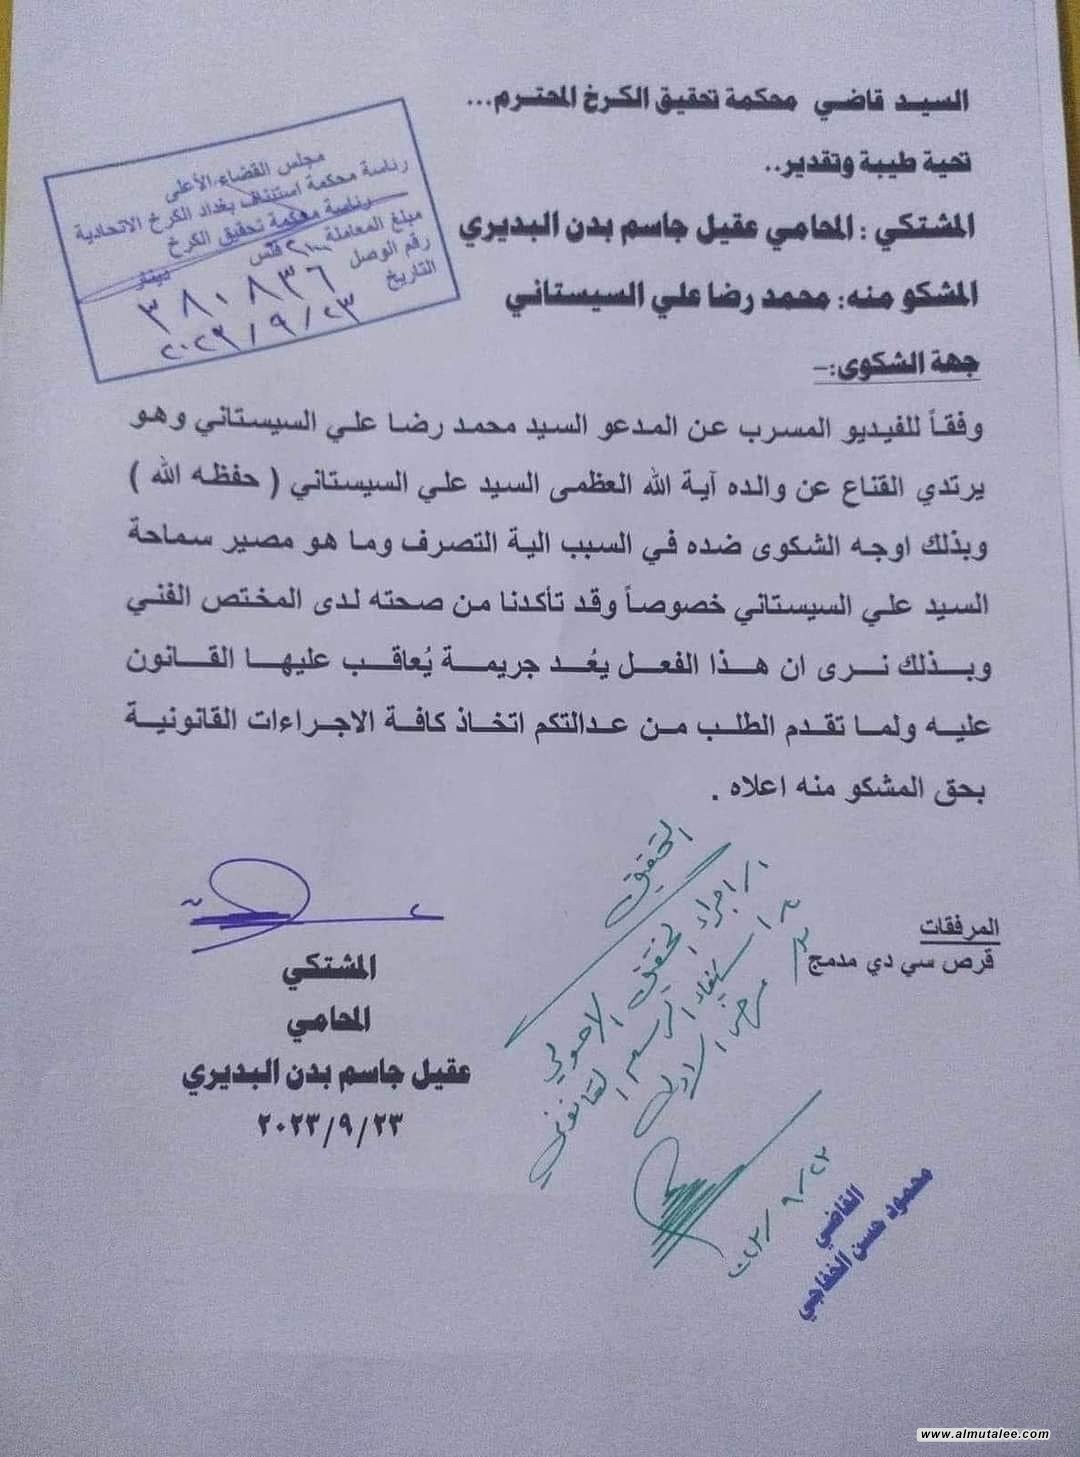 السيد قاضي محكمة تحقيق الكرخ المحترم...
تحية طيبة وتقدير..
المشتكي : المحامي عقيل جاسم بدن البديري
المشكو منه: محمد رضا علي السيستاني
جهة الشكوى:-
وفقاً للفيديو المسرب عن المدعو السيد محمد رضا علي السيستاني وهو
يرتدي القناع عن والده آية الله العظمى السيد علي السيستاني ( حفظه الله )
وبذلك اوجه الشكوى ضده في السبب الية التصرف وما هو مصير سماحة
السيد علي السيستاني خصوصاً وقد تأكدنا من صحته لدى المختص الفني
وبذلك نرى ان هذا الفعل يعُد جريمة يُعاقب عليها القانون
عليه ولما تقدم الطلب من عدالتكم اتخاذ كافة الاجراءات القانونية
بحق المشكو منه اعلاه .
مجلس القضاء الأعلى
رئاسة محكمة استئناف بغداد الكرخ الاتحادية
رئاسة محكمة تحقيق الكرخ
مبلغ المعاملة فلس دينار
رقم الوصل ٣٨٠٨٣٦
التاريخ ٢٠٢٣/٩/٢٣
المرفقات
قرص سي دي مدمج
المشتكي
المحامي
عقيل جاسم بدن البديري
٢٠٢٣/٩/٢٣
التحقيق
١/ اجراء التحقيق الاصولي
٢/ استيفاء الرسم القانوني
٣/
٩/٢٣
القاضي
محمود حسن الخفاجي
www.almutalee.com